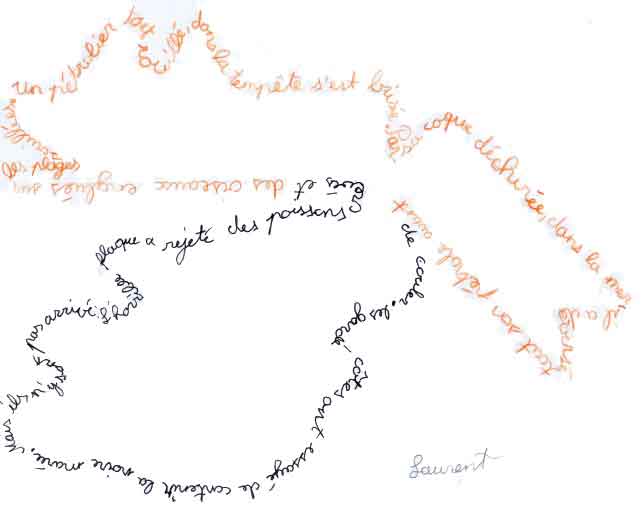 Un pétrolier tout rouillé, dans la tempête s'est brisé. Par sa coque déchirée, dans la mer il a déversé tout son pétrole avant
de couler. Les garde-côtes ont essayé de contenir la noire marée, mais ils n'y sont pas arrivé. plaque a rejeté des poissons
et des oiseaux englués sur les plages
Laurent